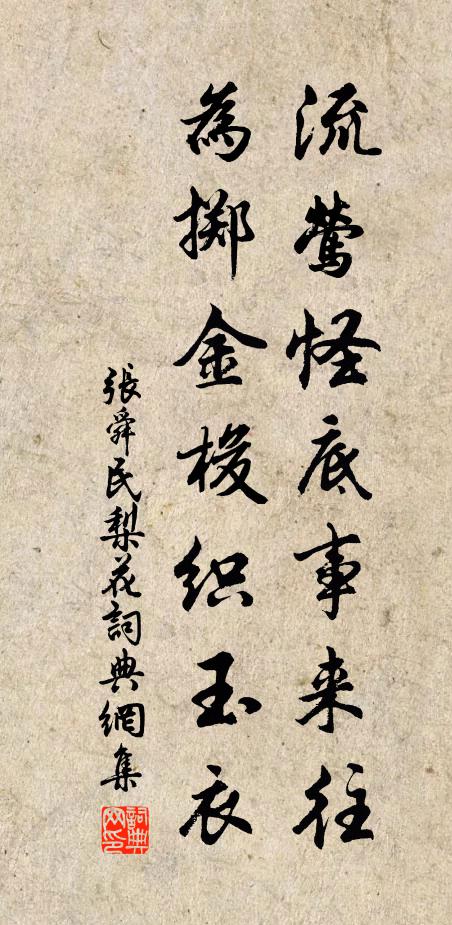 流莺怪底事来往
為掷金梭织玉衣
張舜民梨花詞典網集
詞典網印